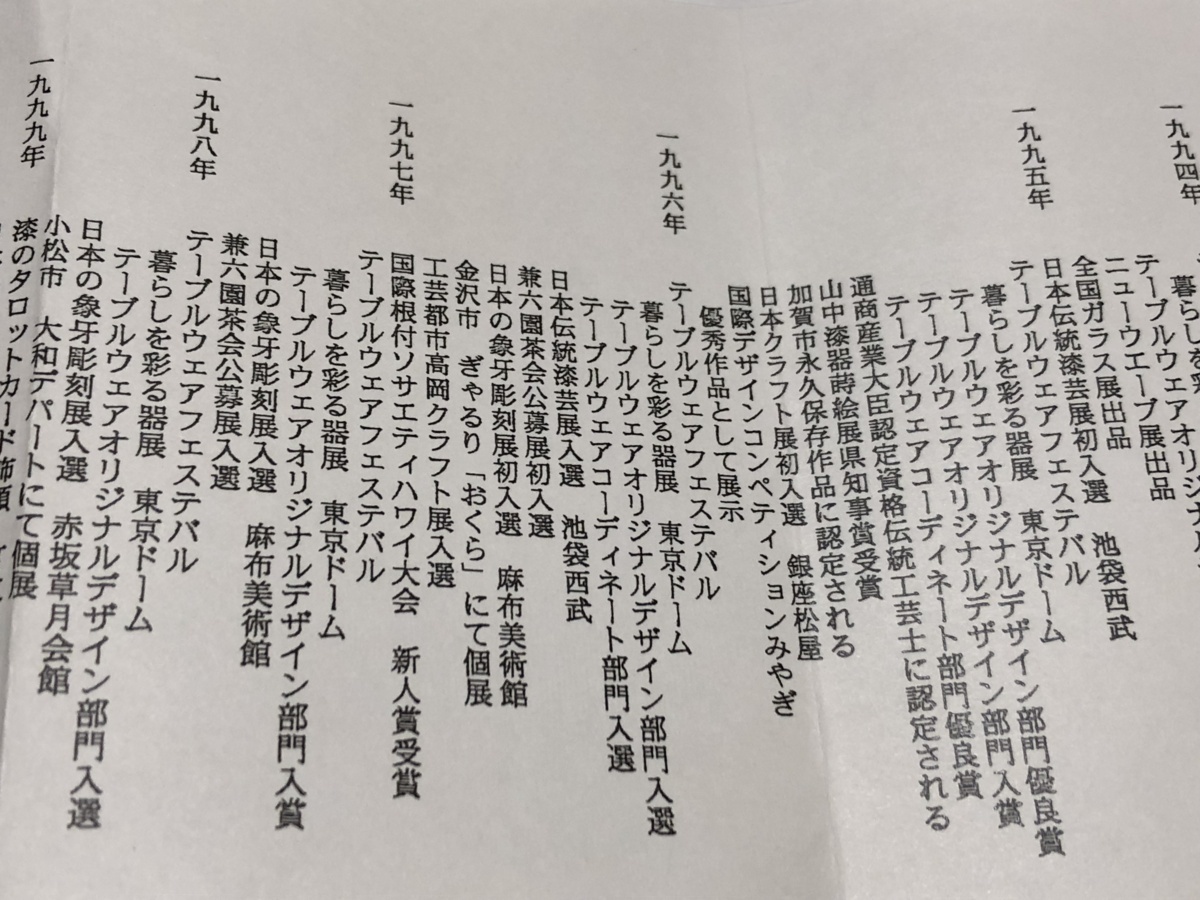 一九九四年
テーブルウェアオリジナル
ニューウエーブ展出品
全国ガラス展出品
一九九五年
日本伝統漆芸展初入選　池袋西武
テーブルウェアフェステバル
暮らしを彩る器展　東京ドーム
テーブルウェアオリジナルデザイン部門優良賞
テーブルウェアオリジナルデザイン部門入賞
テーブルウェアコーディネート部門優良賞
通商産業大臣認定資格伝統工芸士に認定される
山中漆器蒔絵展県知事賞受賞
加賀市永久保存作品に認定される
日本クラフト展初入選　銀座松屋
国際デザインコンペティションみやぎ
優秀作品として展示
一九九六年
テーブルウェアフェステバル
暮らしを彩る器展　東京ドーム
テーブルウェアオリジナルデザイン部門入選
テーブルウェアコーディネート部門入選
日本伝統漆芸展入選　池袋西武
兼六園茶会公募展初入選
日本の象牙彫刻展初入選　麻布美術館
金沢市　ぎゃるり「おくら」にて個展
工芸都市高岡クラフト展入選
一九九七年
国際根付ソサエティハワイ大会　新人賞受賞
テーブルウェアフェステバル
暮らしを彩る器展　東京ドーム
テーブルウェアオリジナルデザイン部門入賞
日本の象牙彫刻展入選　麻布美術館
兼六園茶会公募展入選
一九九八年
テーブルウェアフェステバル
暮らしを彩る器展　東京ドーム
テーブルウェアオリジナルデザイン部門入選
日本の象牙彫刻展入選　赤坂草月会館
小松市　大和デパートにて個展
一九九九年
漆のタロットカード